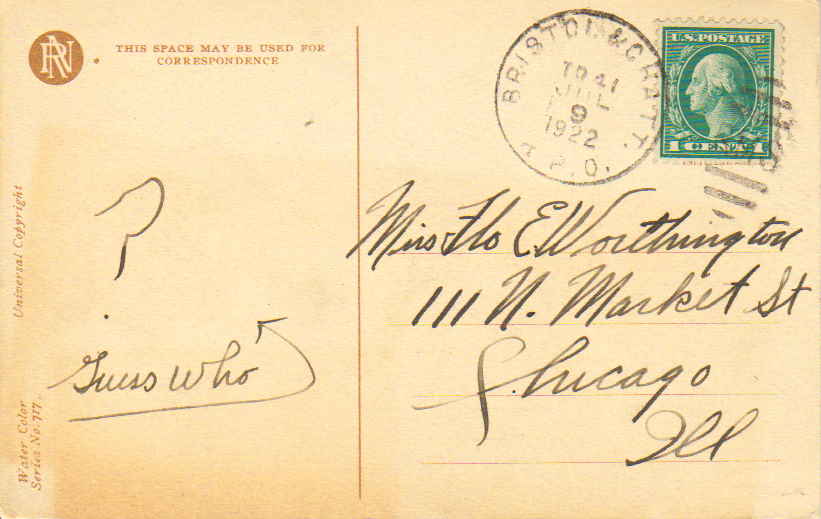 RN
THIS SPACE MAY BE USED FOR
CORRESPONDENCE
BRISTOL & CHATT.
TR 41
JUL
9
1922
R.P.O.
U.S. POSTAGE
1 CENT 1
?
Guess who
Miss Flo E. Worthington
111 N. Market St
Chicago
Ill
Universal Copyright
Water Color
Series No. 717.